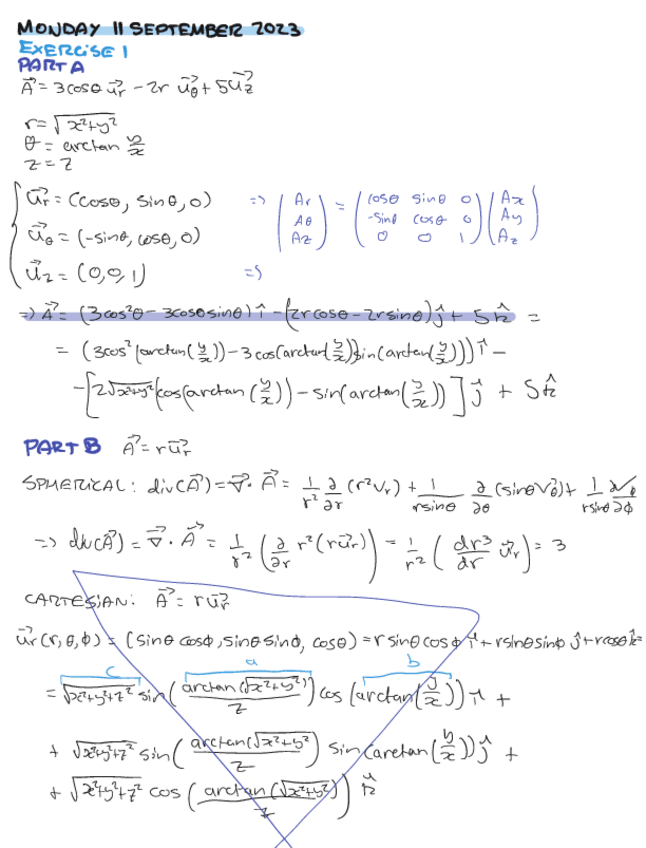 MONDAY 11 SEPTEMBER 2023
EXERCISE 1
PART A
A⃗ = 3cosθ u⃗r − 2r u⃗θ + 5u⃗z
r = √(x²+y²)
θ = arctan y/x
z = z
u⃗r = (cosθ, sinθ, 0) => (Ar Aθ Az) = (cosθ sinθ 0; -sinθ cosθ 0; 0 0 1) (Ax Ay Az)
u⃗θ = (-sinθ, cosθ, 0)
u⃗z = (0,0,1) =>
=> A⃗ = (3cos²θ − 3cosθsinθ) î − (2rcosθ − 2rsinθ) ĵ + 5k̂ =
= (3cos²(arctan(y/x)) − 3cos(arctan(y/x))sin(arctan(y/x))) î −
− [2√(x²+y²)(cos(arctan(y/x)) − sin(arctan(y/x))] ĵ + 5k̂
PART B A⃗ = r u⃗r
SPHERICAL: div(A⃗) = ∇⃗ · A⃗ = 1/r² ∂/∂r (r²Vr) + 1/rsinθ ∂/∂θ (sinθ Vθ) + 1/rsinθ ∂Vϕ/∂ϕ
=> div(A⃗) = ∇⃗ · A⃗ = 1/r² (∂/∂r r²(r u⃗r)) = 1/r² (dr³/dr u⃗r) = 3
CARTESIAN: A⃗ = r u⃗r
u⃗r(r,θ,ϕ) = (sinθ cosϕ, sinθ sinϕ, cosθ) = r sinθ cosϕ î + r sinθ sinϕ ĵ + r cosθ k̂ =
c a b
= √(x²+y²+z²) sin(arctan(√(x²+y²))/z) cos(arctan(y/x)) î +
+ √(x²+y²+z²) sin(arctan(√(x²+y²))/z) sin(arctan(y/x)) ĵ +
+ √(x²+y²+z²) cos(arctan(√(x²+y²))/z) k̂